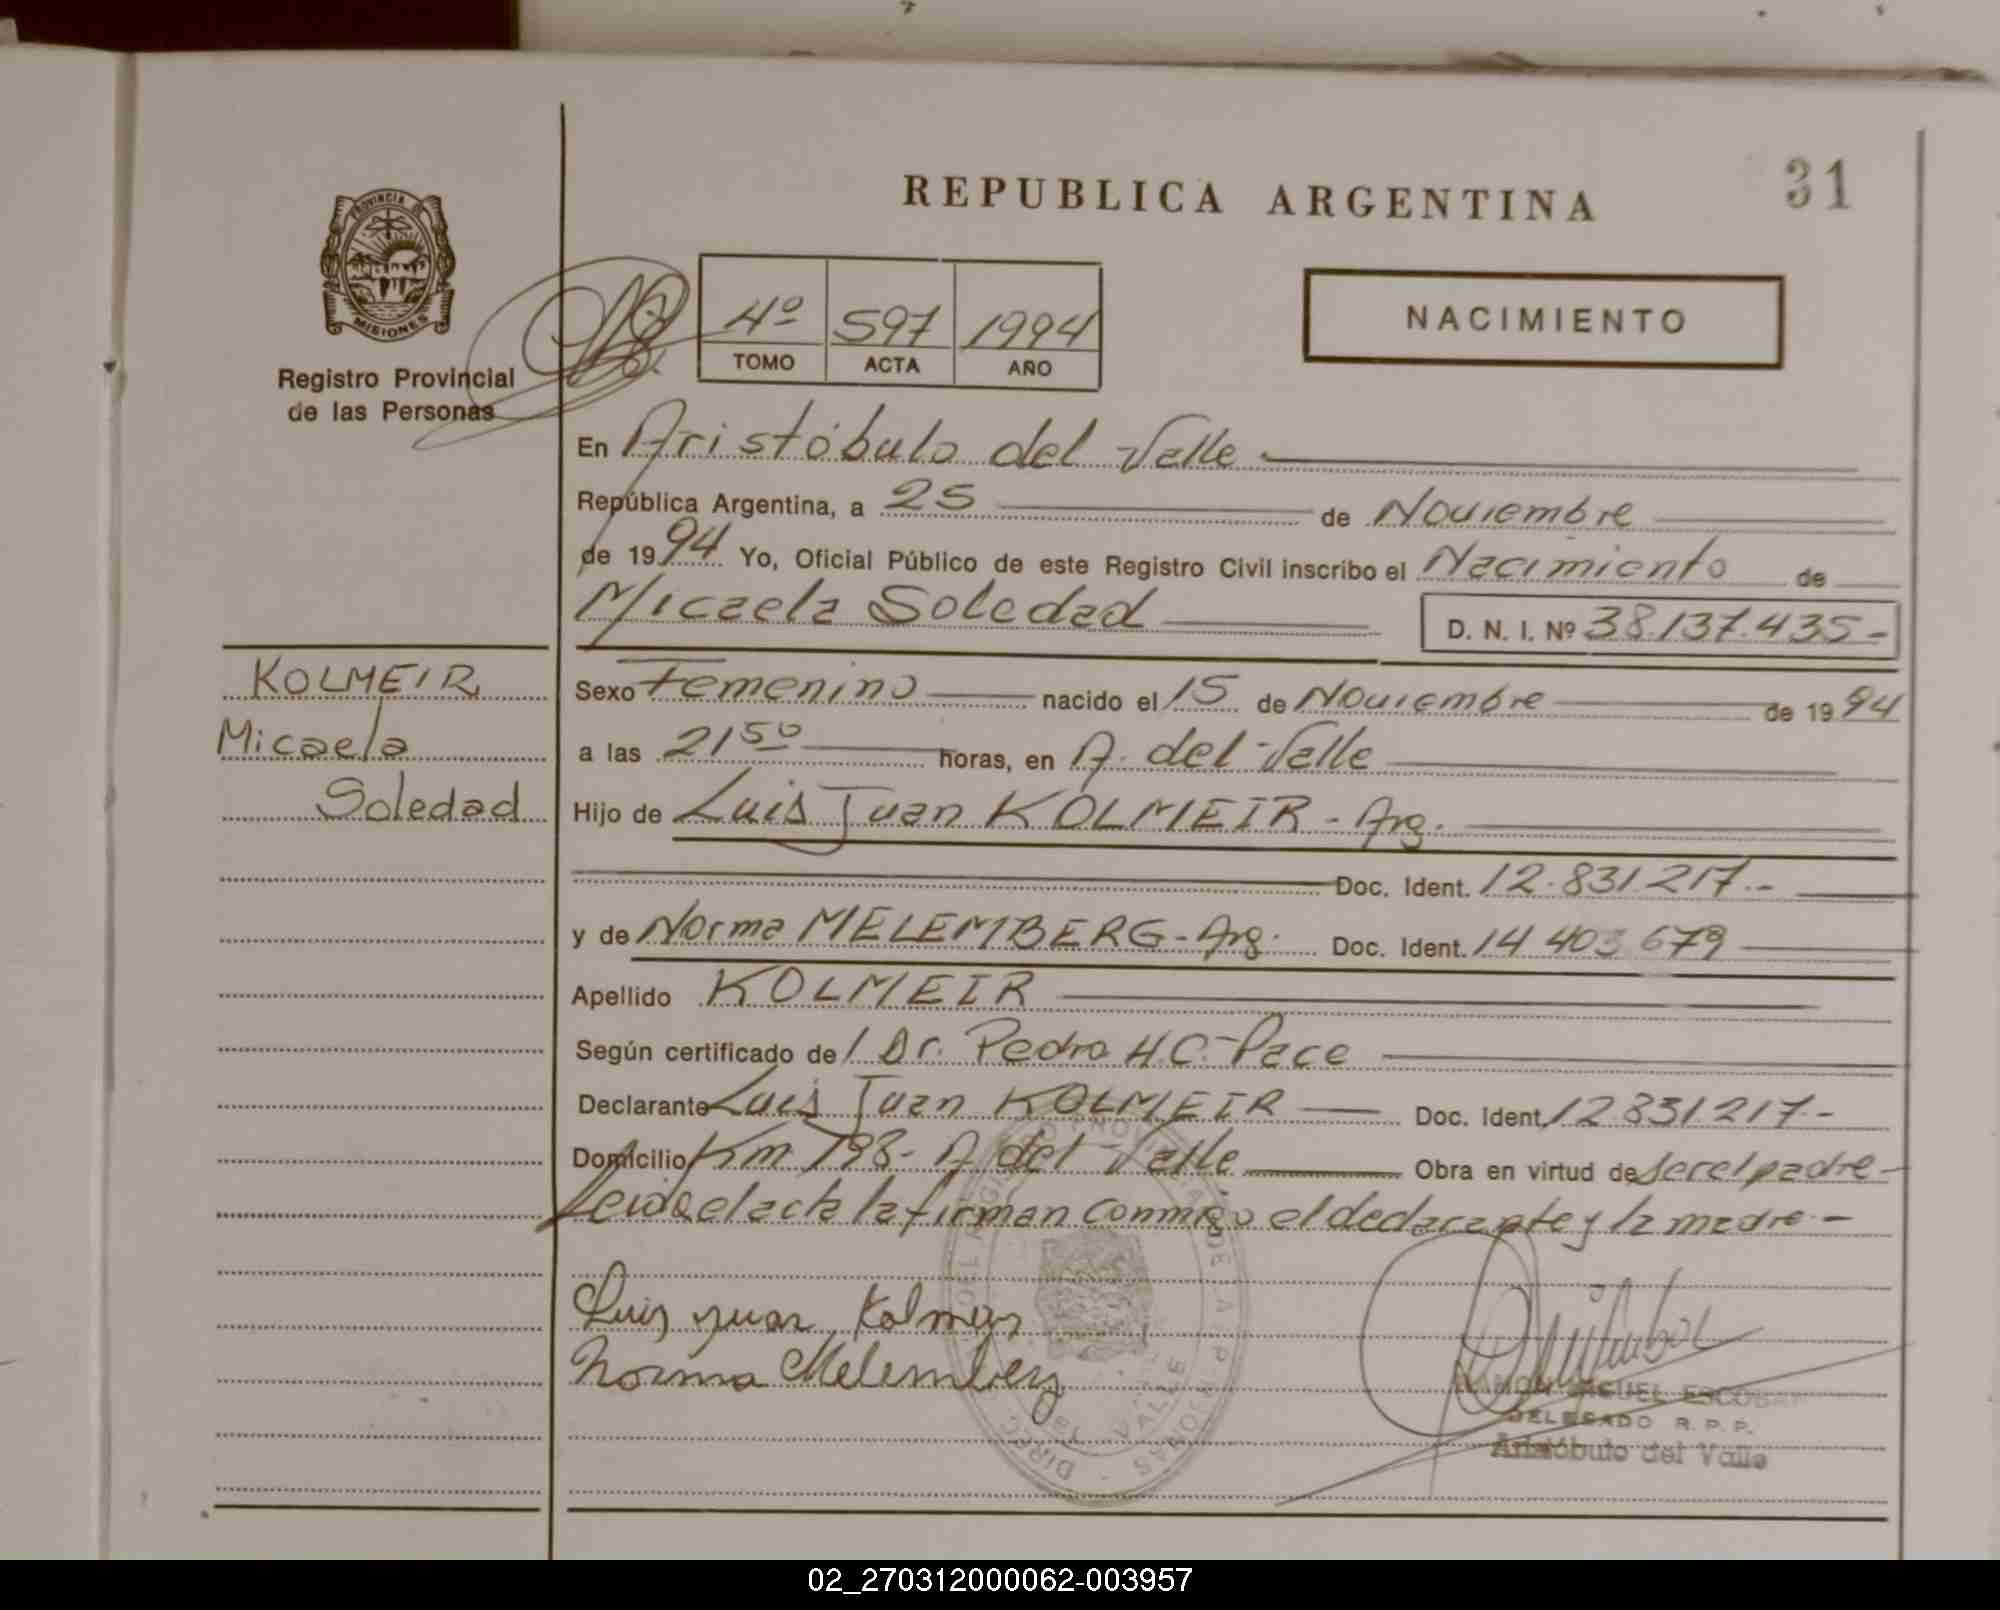 31
REPUBLICA ARGENTINA
PROVINCIA DE
MISIONES
Registro Provincial
de las Personas
4º 597 1994
TOMO ACTA AÑO
NACIMIENTO
En Aristóbulo del Valle
República Argentina, a 25 de Noviembre
de 1994 Yo, Oficial Público de este Registro Civil inscribo el Nacimiento de
Micaela Soledad D. N. I. Nº 38.137.435-
KOLMEIR,
Micaela
Soledad
Sexo Femenino nacido el 15 de Noviembre de 1994
a las 21 50 horas, en A. del Valle
Hijo de Luis Juan KOLMEIR - Arg.
Doc. Ident. 12.831217.-
y de Norma MELEMBERG - Arg. Doc. Ident. 14 403 679
Apellido KOLMEIR
Según certificado de Dr. Pedro H.C. Pace
Declarante Luis Juan KOLMEIR Doc. Ident. 12.831.217.-
Domicilio Km 198- A del Valle Obra en virtud de ser el padre-
Leida el acta la firman conmigo el declarante y la madre.-
Luis Juan Kolmeir
Norma Melemberg
RAMON MIGUEL ESCOBAR
DELEGADO R. P. P.
Aristóbulo del Valle
02_270312000062-003957